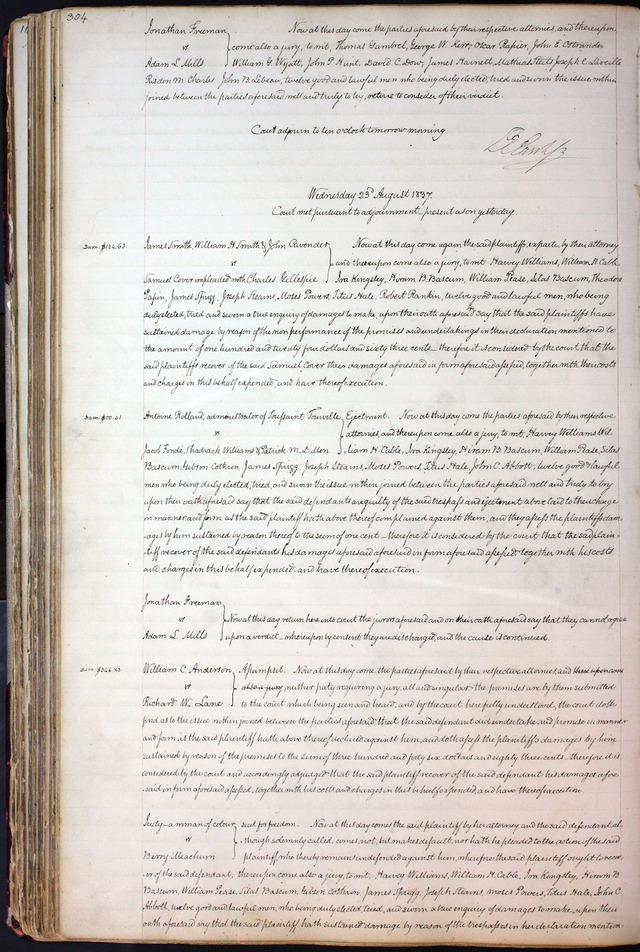 304
Jonathan Freeman Now at this day come the parties aforesaid by their respective attornies, and thereupon
vs come also a jury, to wit, Thomas Gambrel, George W. Kerr, Oscar Papier, John E. Ostrander
Adam L. Mills William G. Wyatt, John P. Hunt, David C. Dow, James Harnett Mathias Joseph C. Laveille
Risdon M. Charles John B. Lebeau, twelve good and lawful men who being duly elected, tried and sworn the issue within
joined between the parties aforesaid well and truly to try, retire to consider of their verdict
Court adjourn to ten o'clock tomorrow morning
Wednesday 23d August 1837.
Court met pursuant to adjournment present as on yesterday.
Dam. $124.63 James Smith, William H. Smith & John Cavender Now at this day come again the said plaintiffs, exparte, by their attorney
vs and thereupon come also a jury, to wit Harvey Williams, William H. Cable
Samuel Cover impleaded with Charles Gillespie Ira Kingsley, Hiram B. Bascum, William Pease, Silas Bascum, Theodore
Papin, James Spugg, Joseph Stearns, Moses Powers, Titus Hale, Robert Rankin, twelve good and lawful men, who being
duly elected, tried and sworn a true enquiry of damages to make, upon their oath aforesaid say that the said plaintiffs have
sustained damage by reason of the non performance of the promises and undertakings in their declaration mentioned to
the amount of one hundred and twenty four dollars and sixty three cents therefore it is considered by the court that the
said plaintiffs recover of the said Samuel Cover their damages aforesaid in form aforesaid assessed, together with their costs
and charges in this behalf expended, and have thereof execution.
Dam. $00.01 Antoine Rolland, administrator of Toussaint Tourville Ejectment. Now at this day come the parties aforesaid by their respective
vs attornies, and thereupon come also a jury, to wit, Harvey Williams Wil
Jacob Fondé, Shadrack Williams & Patrick M. Dillon liam H. Cable, Ira Kingsley, Hiram B. Bascum, William Pease, Silas
Bascum, Gibson Cothron, James Spugg, Joseph Stearns, Moses Powers, Titus Hale, John C. Abbott, twelve good & lawful
men who being duly elected, tried, and sworn the issue within joined between the parties aforesaid well and truly to try
upon their oath aforesaid say that the said defendants are guilty of the said trespass and ejectment above laid to their charge
in manner and form as the said plaintiff hath above thereof complained against them, and they assess the plaintiffs dam-
ages by him sustained by reason thereof to the sum of one cent - therefore it is considered by the court that the said plain-
tiff recover of the said defendants his damages aforesaid aforesaid in form aforesaid assessed together with his costs
and charges in this behalf expended, and have thereof execution.
Jonathan Freeman
vs Now at this day return here into court the jurors aforesaid and on their oath aforesaid say that they cannot agree
Adam L. Mills upon a verdict - whereupon by consent they are discharged, and the cause is continued.
Dam. $346.83 William C. Anderson Assumpsit. Now at this day come the parties aforesaid by their respective attornies, and thereupon come
vs also a jury, neither party requiring a jury, all and singular the premises are by them submitted
Richard W. Lane to the court which being seen and heard, and by the court here fully understood, the court doth
find as to the issue within joined between the parties aforesaid that the said defendant did undertake and promise in manner
and form as the said plaintiff hath above thereof declared against him, and doth assess the plaintiffs damages by him
sustained by reason of the premises to the sum of three hundred and forty six dollars and eighty three cents. Therefore it is
considered by the court and accordingly adjudged that the said plaintiff recover of the said defendant his damages afore
said in form aforesaid assessed, together with his costs and charges in this behalf expended, and have thereof execution.
Judy - a woman of colour suit for freedom. Now at this day comes the said plaintiff by her attorney and the said defendant al-
vs though solemnly called, comes not, but makes default, nor hath he pleaded to the action of the said
Berry Meachum plaintiff who thereby remains undefended against him, wherefore the said plaintiff ought to recov
er of the said defendant, thereupon come also a jury to wit, Harvey Williams, William H. Cable, Ira Kingsley, Hiram B
Bascum, William Pease, Silas Bascum, Gibson Cothron, James Spugg, Joseph Stearns, Moses Powers, Titus Hale, John C.
Abbott, twelve good and lawful men, who being duly elected, tried, and sworn a true enquiry of damages to make, upon their
oath aforesaid say that the said plaintiff hath sustained damage by reason of the trespasses in her declaration mention-